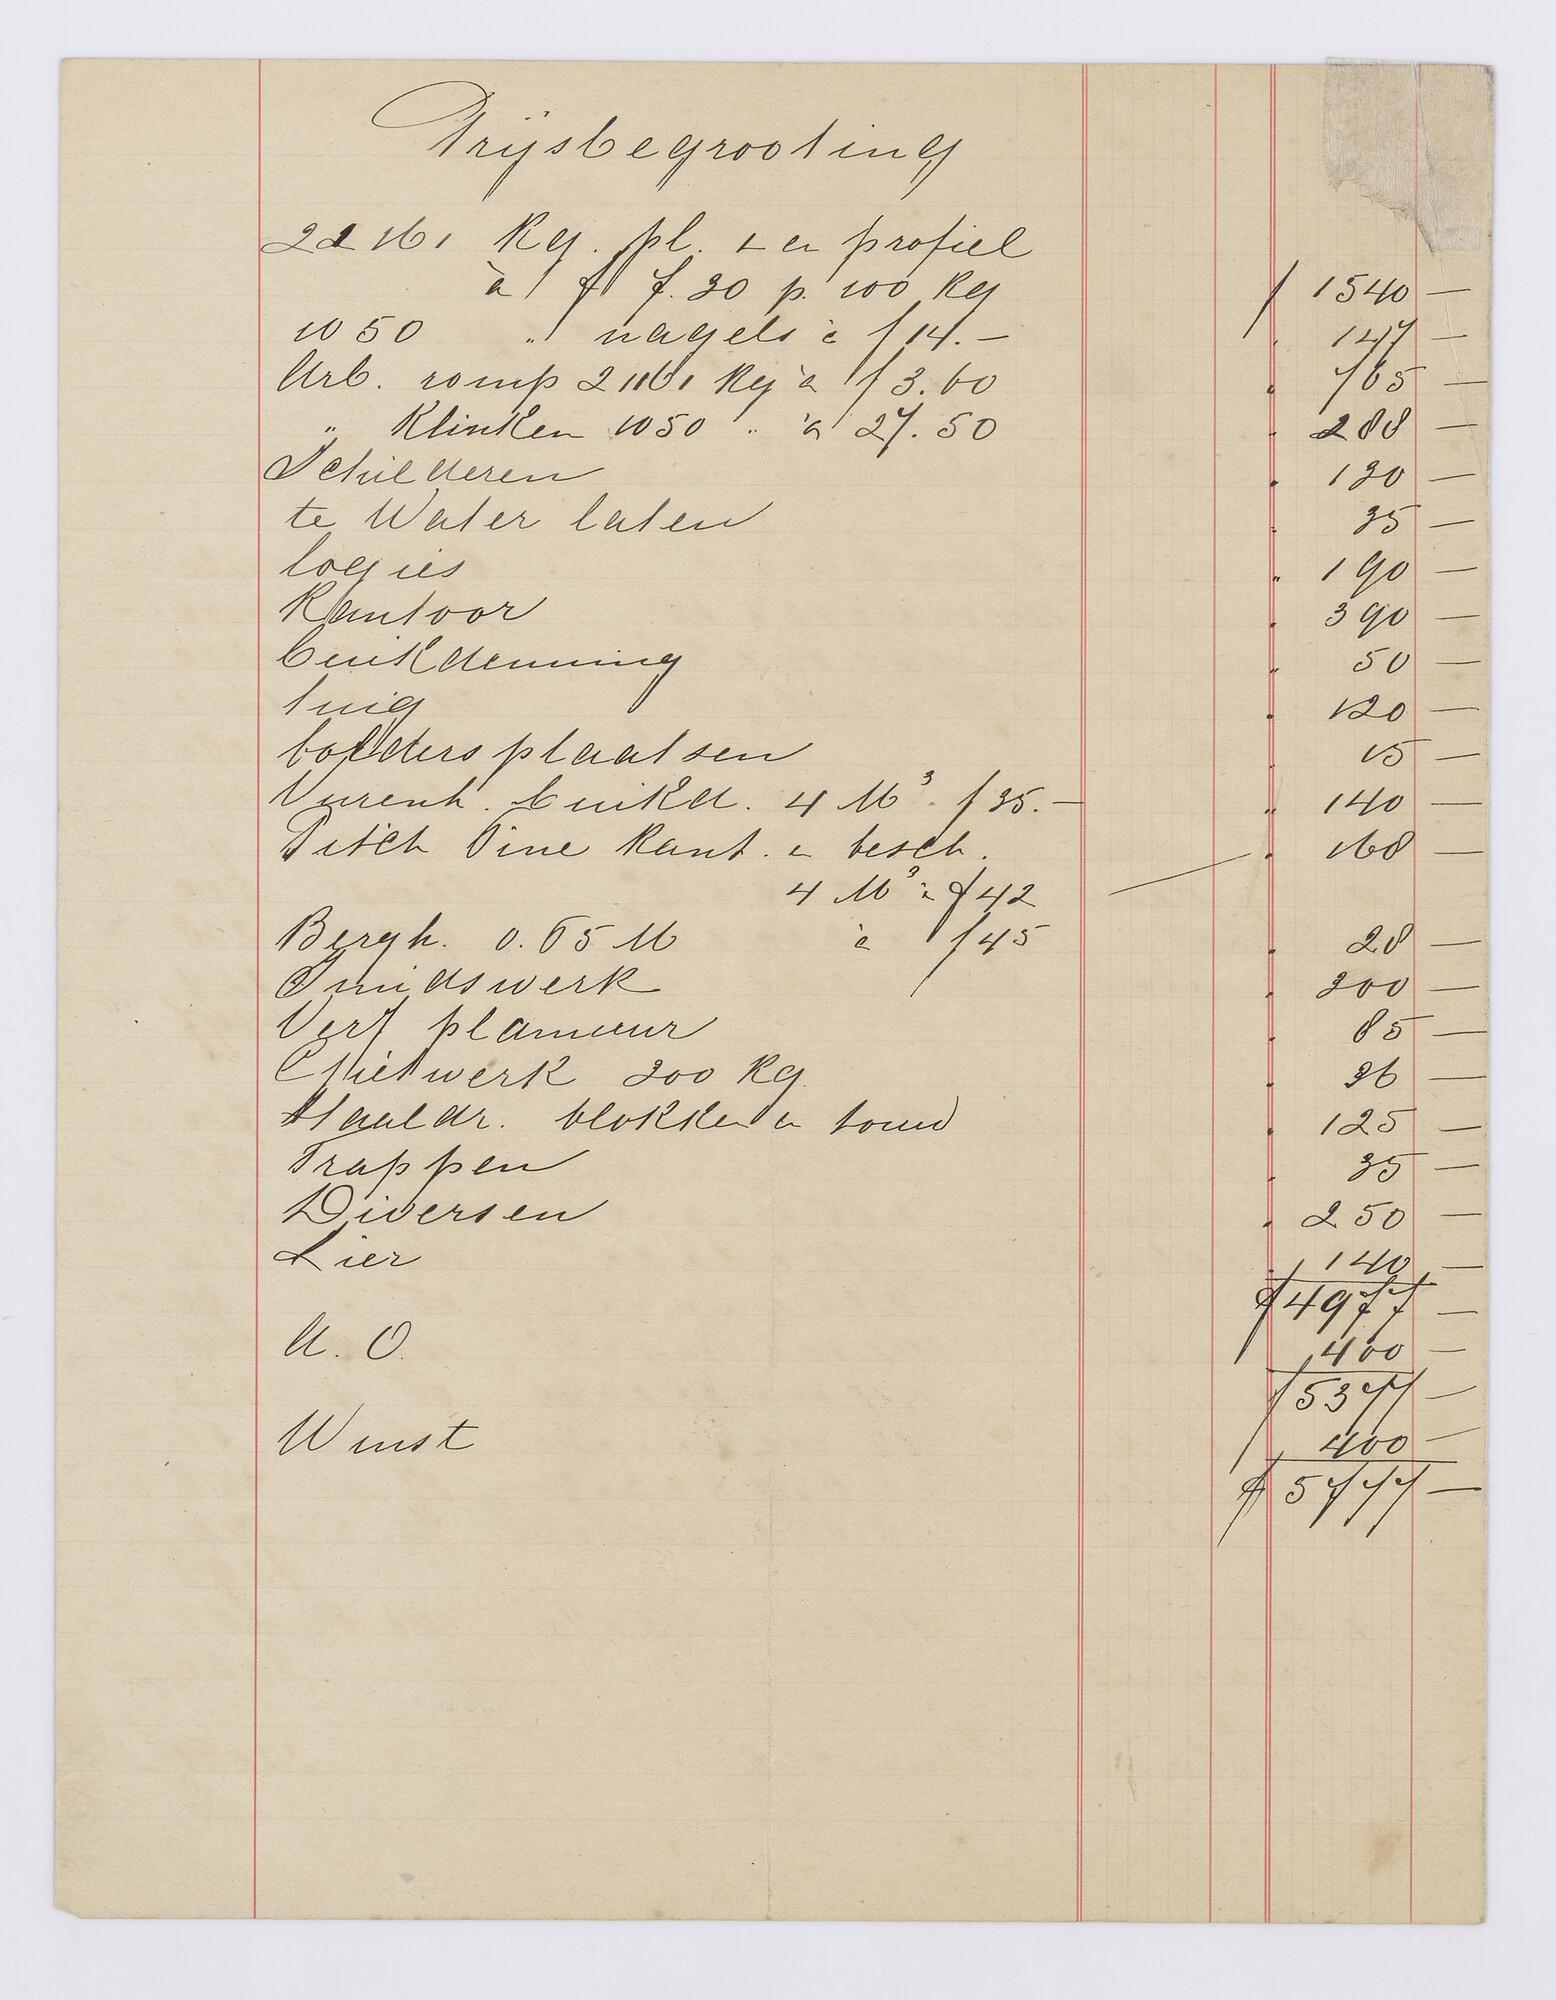 Prijsbegrooting
22161 Kg. pl. L en profiel
à f 7.30 p. 100 Kg f 1540 —
1050 " nagels à f 14.— " 147 —
Arb. romp 21161 Kg à f 3.60 " 765 —
" Klinken 1050 " à 27.50 " 288 —
Schilderen " 130 —
te Water laten " 35 —
logies " 190 —
Kantoor " 390 —
buikdenning " 50 —
tuig " 120 —
bolders plaatsen " 15 —
Vurenh. buikd. 4 M³ f 35.— " 140 —
Pitch Pine kant. en besch. " 168 —
4 M³ à f 42
Bergh. 0.65 M à f 45 " 28 —
Smidswerk " 200 —
Verf plamuur " 85 —
Gietwerk 300 Kg. " 36 —
Staaldr. blokken en touw " 125 —
Trappen " 35 —
Diversen " 250 —
Lier " 140 —
f 4977 —
A. O. 400 —
f 5377 —
Winst 400 —
f 5777 —